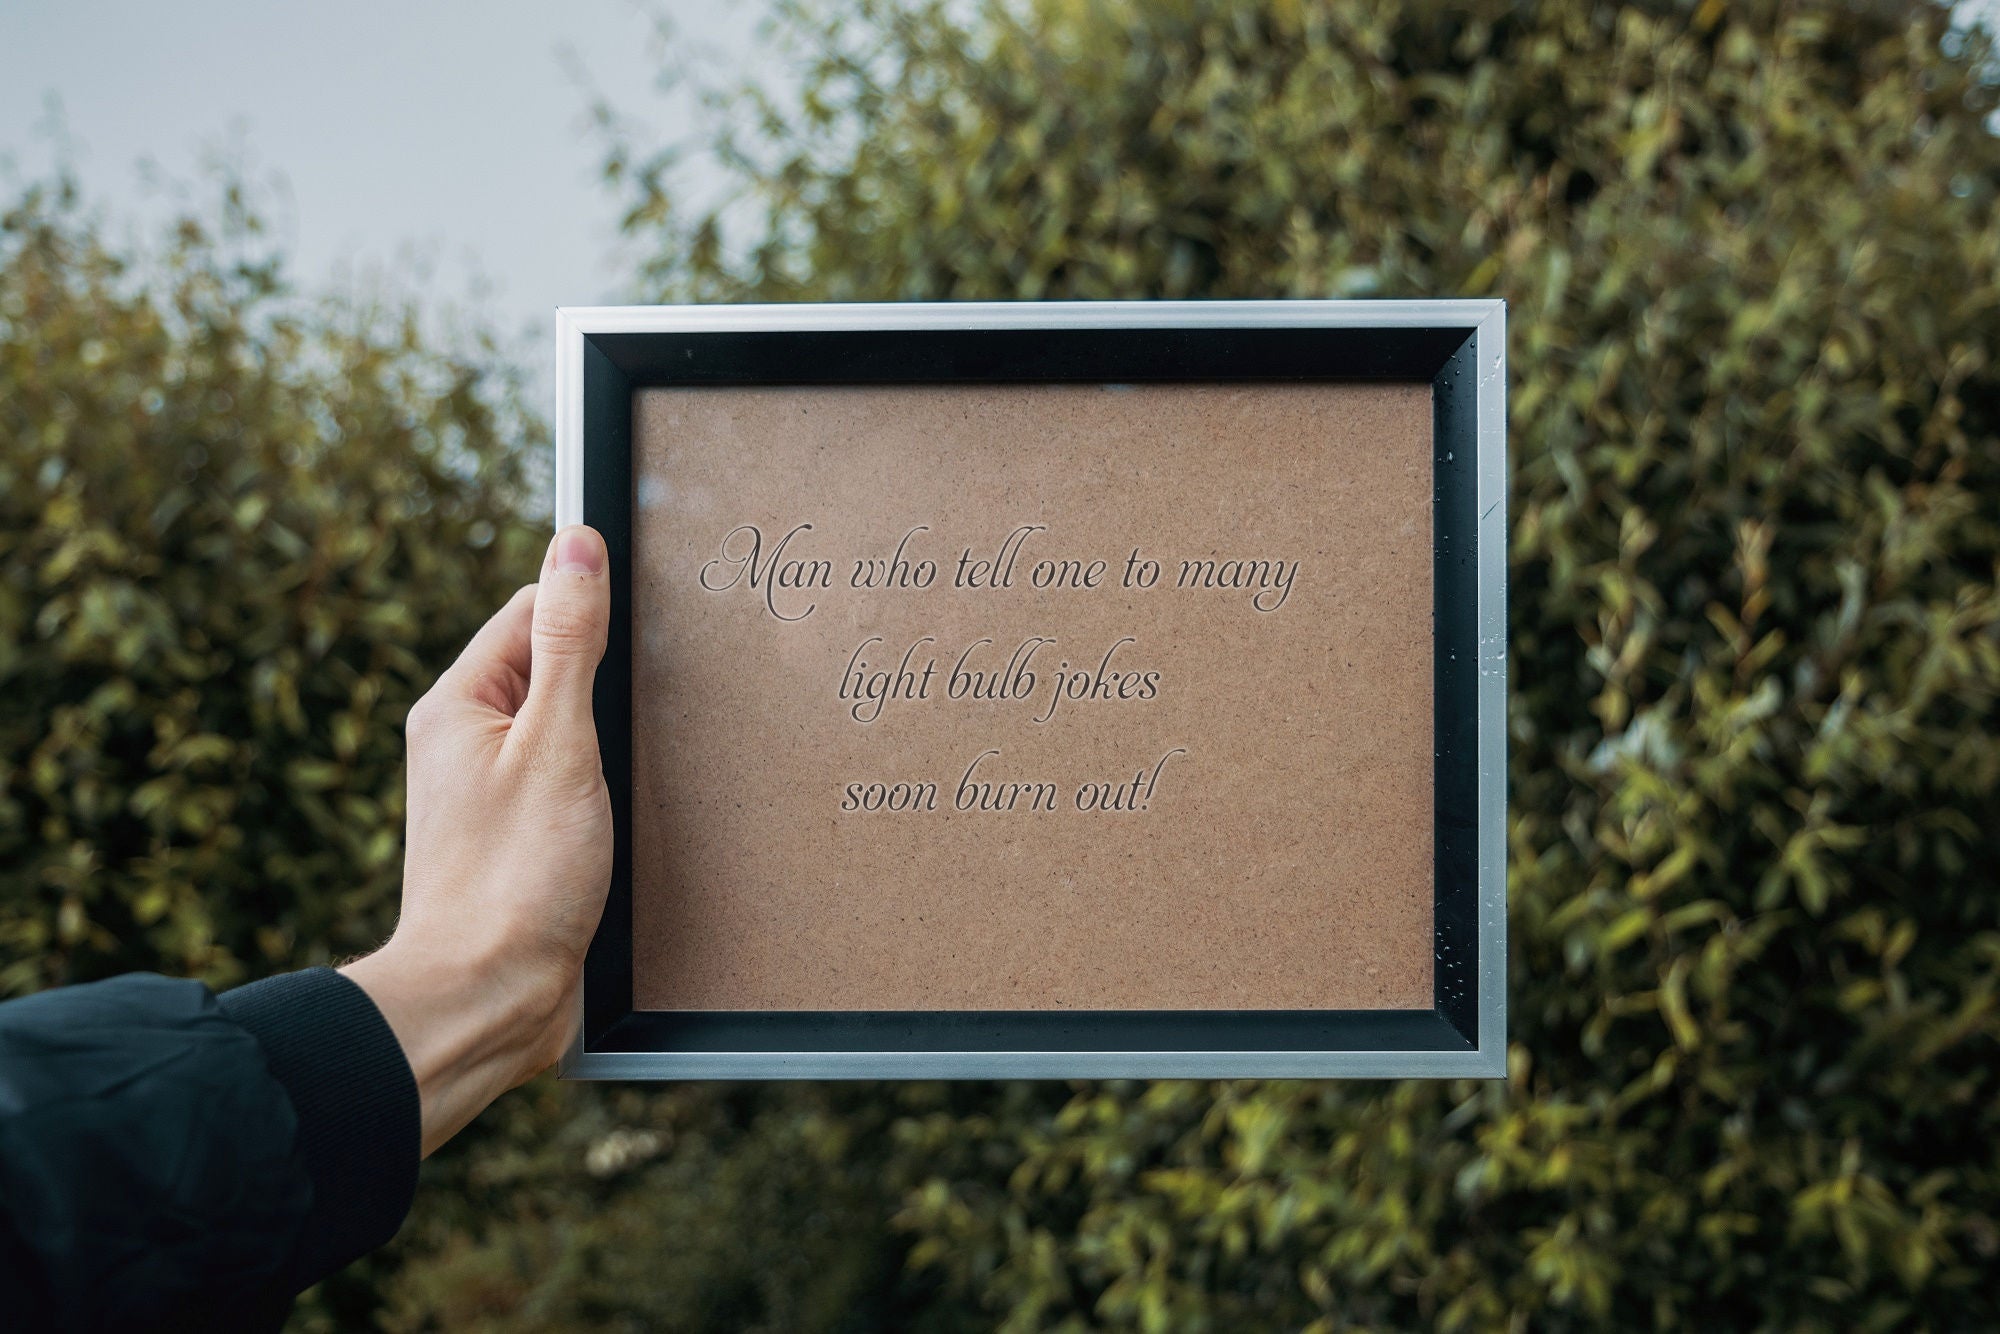 Man who tell one to many
light bulb jokes
soon burn out!